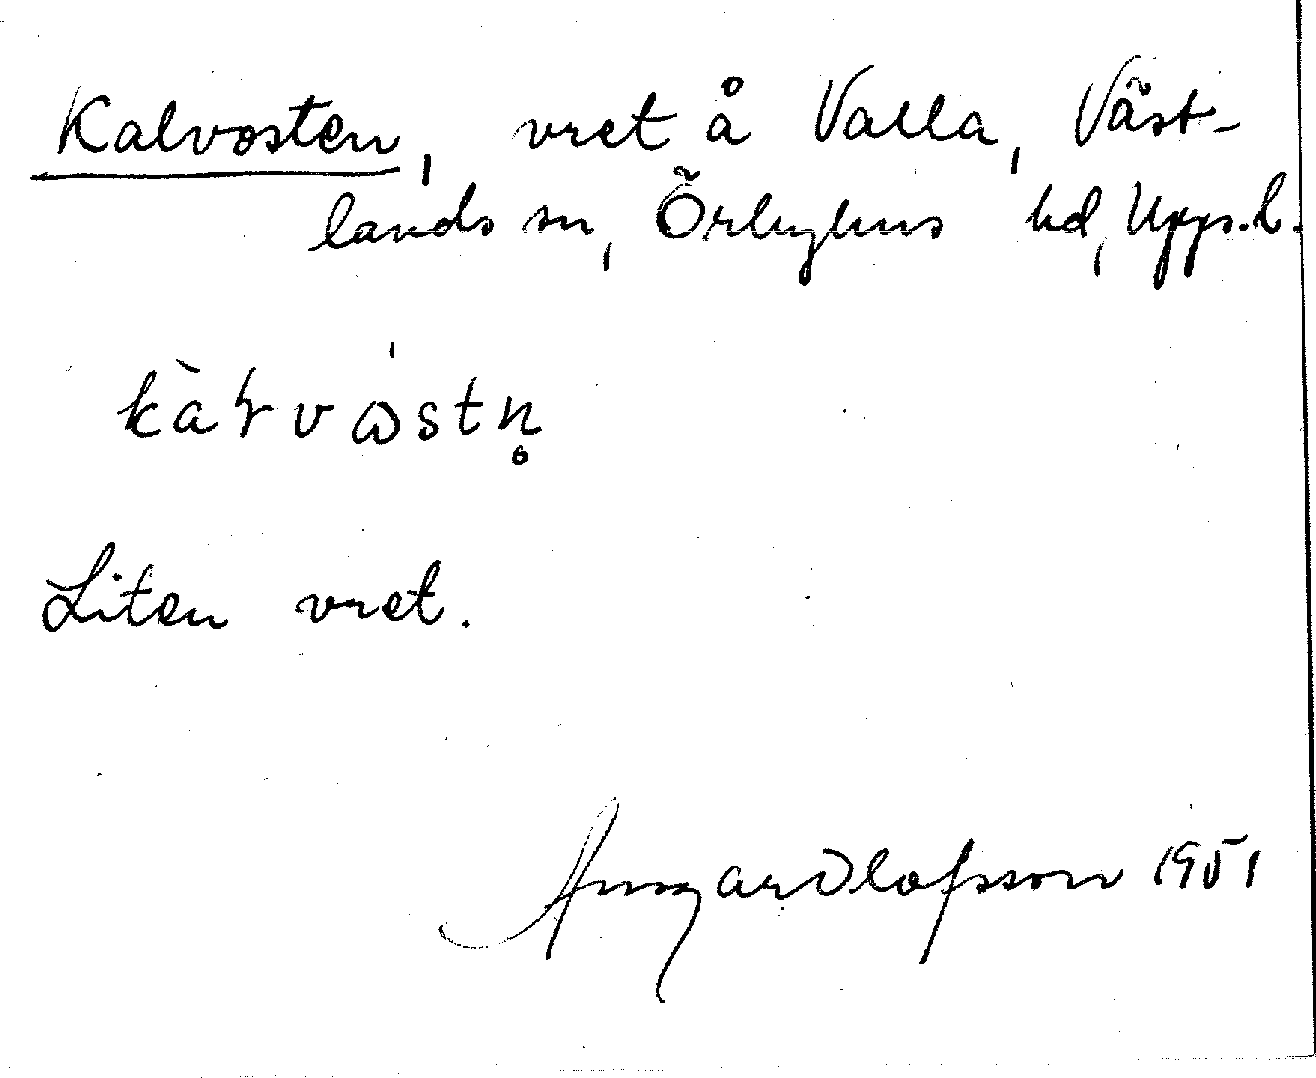 Kalvosten, vret å Valla, Väst-
lands sn, Örbyhus hd, Upps. l.
kàɽvɷ́stn̥
Liten vret.
Ansgar Olofsson 1951